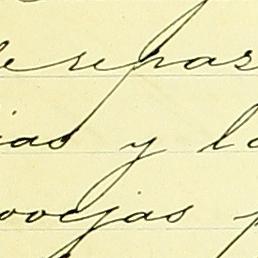 de repas
ias y la
ovejas p